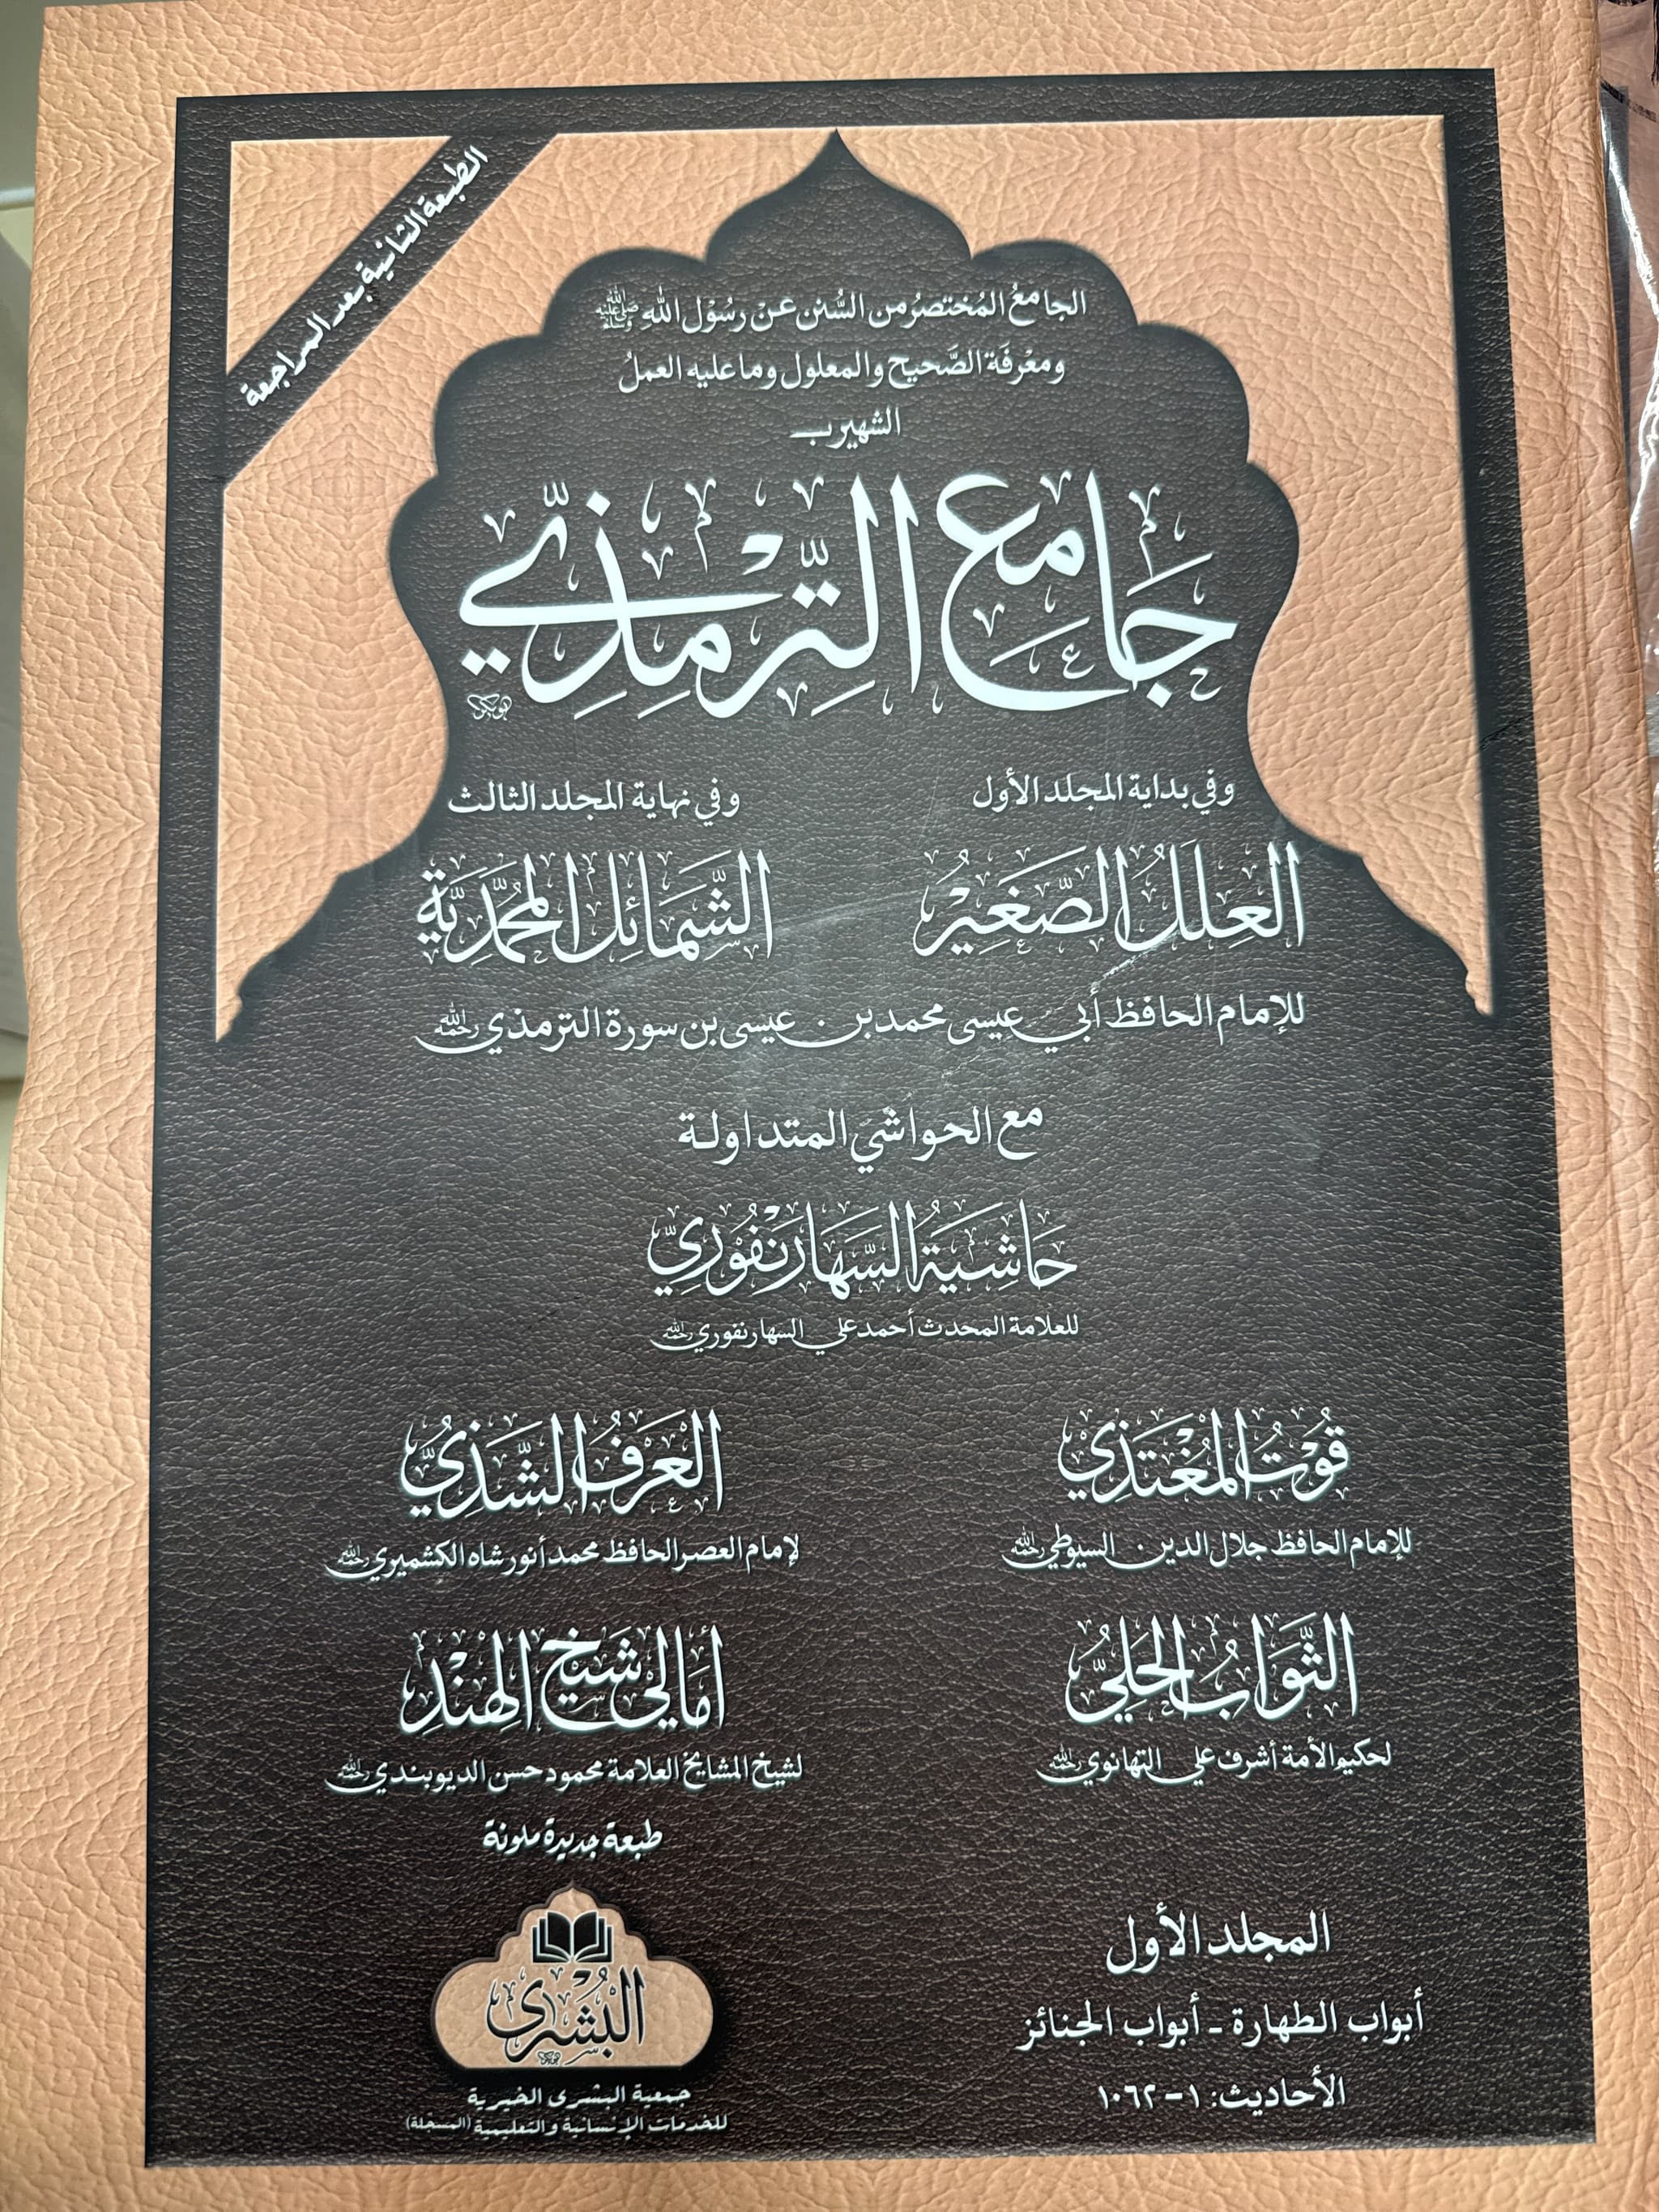 الطبعة الثانية بعد المراجعة
الجامعُ المُختصرُ من السُّنن عَنْ رسُوْل اللهِ ﷺ
ومعْرفَة الصَّحيح والمعلول وما عليه العملُ
الشهير بـ
جَامع التِّرْمِذيّ
وفي بداية المجلد الأول
وفي نهاية المجلد الثالث
العِلَلُ الصَّغِيْرُ
الشَّمَائل المُحَمَّدِيَّة
للإمام الحافظ أبي عيسى محمد بن عيسى بن سورة الترمذي رحمه الله
مع الحواشي المتداولة
حَاشِيَةُ السَّهَارَنْفُوْرِيِّ
للعلامة المحدث أحمد علي السهارنفوري رحمه الله
قُوْتُ المُغْتَذِيْ
العَرْفُ الشَّذِيُّ
للإمام الحافظ جلال الدين السيوطي رحمه الله
لإمام العصر الحافظ محمد أنور شاه الكشميري رحمه الله
الثَّوَابُ الحَلِيُّ
أَمَالِيْ شَيْخِ الهِنْدِ
لحكيم الأمة أشرف علي التهانوي رحمه الله
لشيخ المشايخ العلامة محمود حسن الديوبندي رحمه الله
طبعة جديدة ملونة
المجلد الأول
أبواب الطهارة - أبواب الجنائز
الأحاديث: ١ - ١٠٦٢
البُشْرى
جمعية البشرى الخيرية
للخدمات الإنسانية والتعليمية (المسجلة)